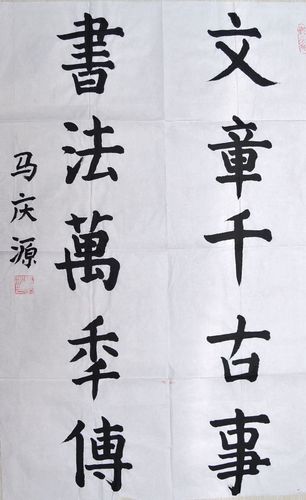 文章千古事
書法萬季傳
马庆源